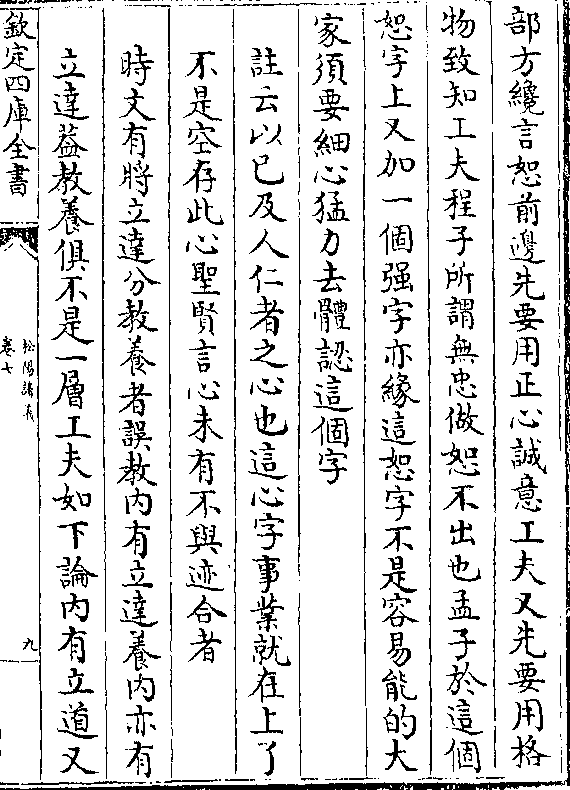 部方纔言恕前邊先要用正心誠意工夫又先要用格
物致知工夫程子所謂無忠做恕不出也孟子於這個
恕字上又加一個强字亦緣這恕字不是容易能的大
家須要細心猛力去體認這個字
註云以已及人仁者之心也這心字事業就在上了
不是空存此心聖賢言心未有不與迹合者
時文有將立達分教養者誤教内有立達養内亦有
立達葢教養俱不是一層工夫如下論内有立道又
欽定四庫全書
松陽講義
卷七
九